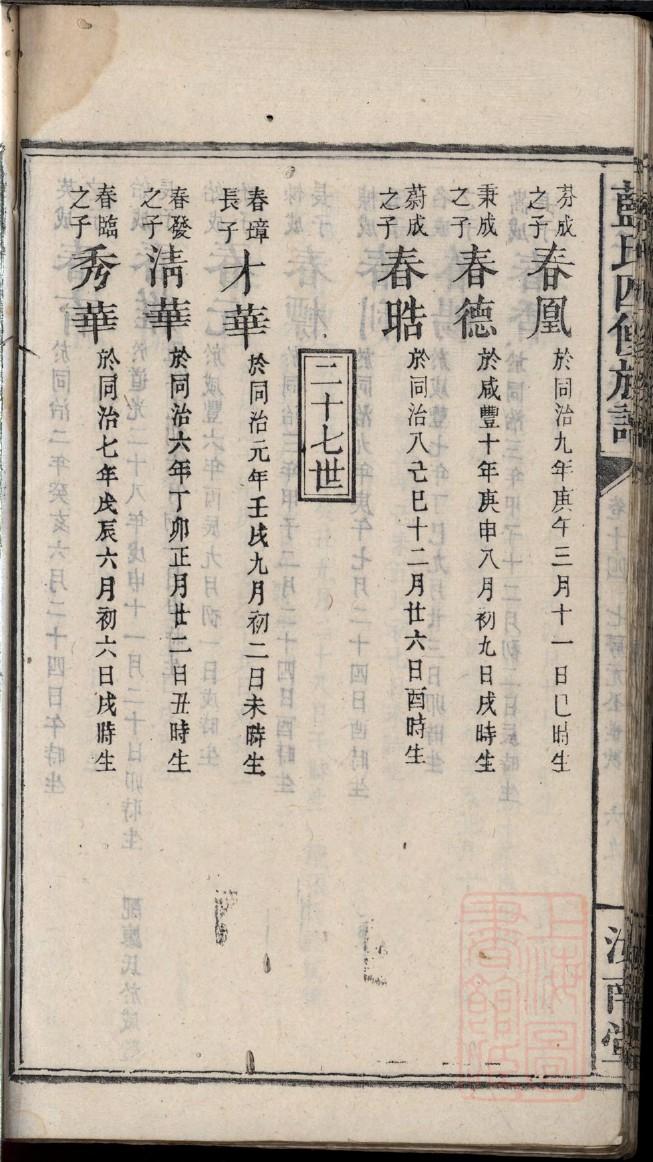 藍氏四修族譜
汝南堂
芬成之子 春凰 於同治九年庚午三月十一日巳時生
秉成之子 春德 於咸豐十年庚申八月初九日戌時生
蔚成之子 春晧 於同治八己巳十二月廿六日酉時生
二十七世
春璋長子 才華 於同治元年壬戌九月初二日未時生
春發之子 淸華 於同治六年丁卯正月廿二日丑時生
春臨之子 秀華 於同治七年戊辰六月初六日戌時生
上海圖書館藏